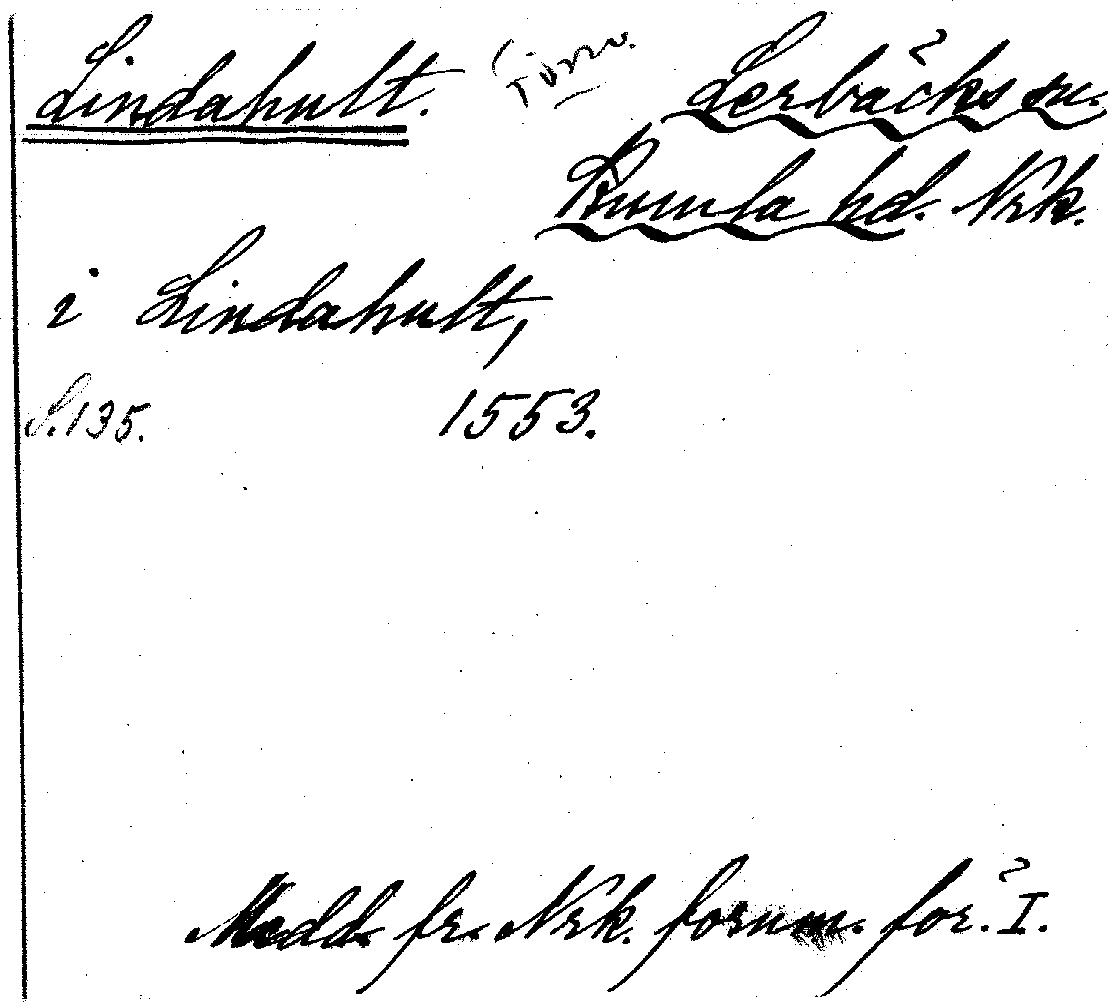 Lindahult. Lerbäcks sn.
Kumla hd. Nrk.
i Lindahult,
S. 135. 1553.
Medd. fr. Nrk. fornm. för. I.